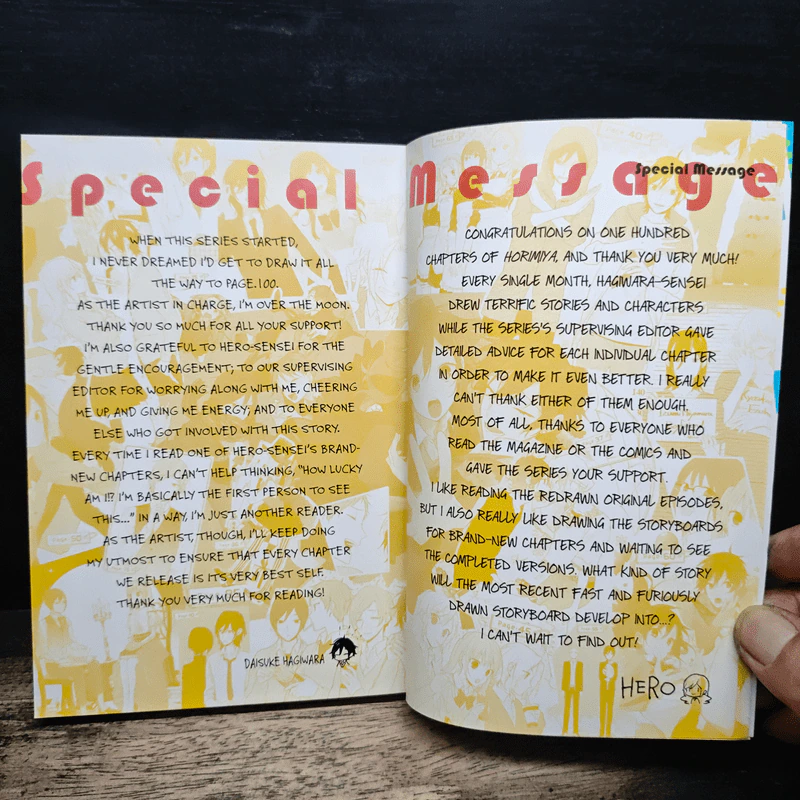 Special Message
Special Message
WHEN THIS SERIES STARTED,
I NEVER DREAMED I'D GET TO DRAW IT ALL
THE WAY TO PAGE.100.
AS THE ARTIST IN CHARGE, I'M OVER THE MOON.
THANK YOU SO MUCH FOR ALL YOUR SUPPORT!
I'M ALSO GRATEFUL TO HERO-SENSEI FOR THE
GENTLE ENCOURAGEMENT; TO OUR SUPERVISING
EDITOR FOR WORRYING ALONG WITH ME, CHEERING
ME UP, AND GIVING ME ENERGY; AND TO EVERYONE
ELSE WHO GOT INVOLVED WITH THIS STORY.
EVERY TIME I READ ONE OF HERO-SENSEI'S BRAND-
NEW CHAPTERS, I CAN'T HELP THINKING, "HOW LUCKY
AM I!? I'M BASICALLY THE FIRST PERSON TO SEE
THIS..." IN A WAY, I'M JUST ANOTHER READER.
AS THE ARTIST, THOUGH, I'LL KEEP DOING
MY UTMOST TO ENSURE THAT EVERY CHAPTER
WE RELEASE IS ITS VERY BEST SELF.
THANK YOU VERY MUCH FOR READING!
DAISUKE HAGIWARA
CONGRATULATIONS ON ONE HUNDRED
CHAPTERS OF HORIMIYA, AND THANK YOU VERY MUCH!
EVERY SINGLE MONTH, HAGIWARA-SENSEI
DREW TERRIFIC STORIES AND CHARACTERS
WHILE THE SERIES'S SUPERVISING EDITOR GAVE
DETAILED ADVICE FOR EACH INDIVIDUAL CHAPTER
IN ORDER TO MAKE IT EVEN BETTER. I REALLY
CAN'T THANK EITHER OF THEM ENOUGH.
MOST OF ALL, THANKS TO EVERYONE WHO
READ THE MAGAZINE OR THE COMICS AND
GAVE THE SERIES YOUR SUPPORT.
I LIKE READING THE REDRAWN ORIGINAL EPISODES,
BUT I ALSO REALLY LIKE DRAWING THE STORYBOARDS
FOR BRAND-NEW CHAPTERS AND WAITING TO SEE
THE COMPLETED VERSIONS. WHAT KIND OF STORY
WILL THE MOST RECENT FAST AND FURIOUSLY
DRAWN STORYBOARD DEVELOP INTO...?
I CAN'T WAIT TO FIND OUT!
HERO